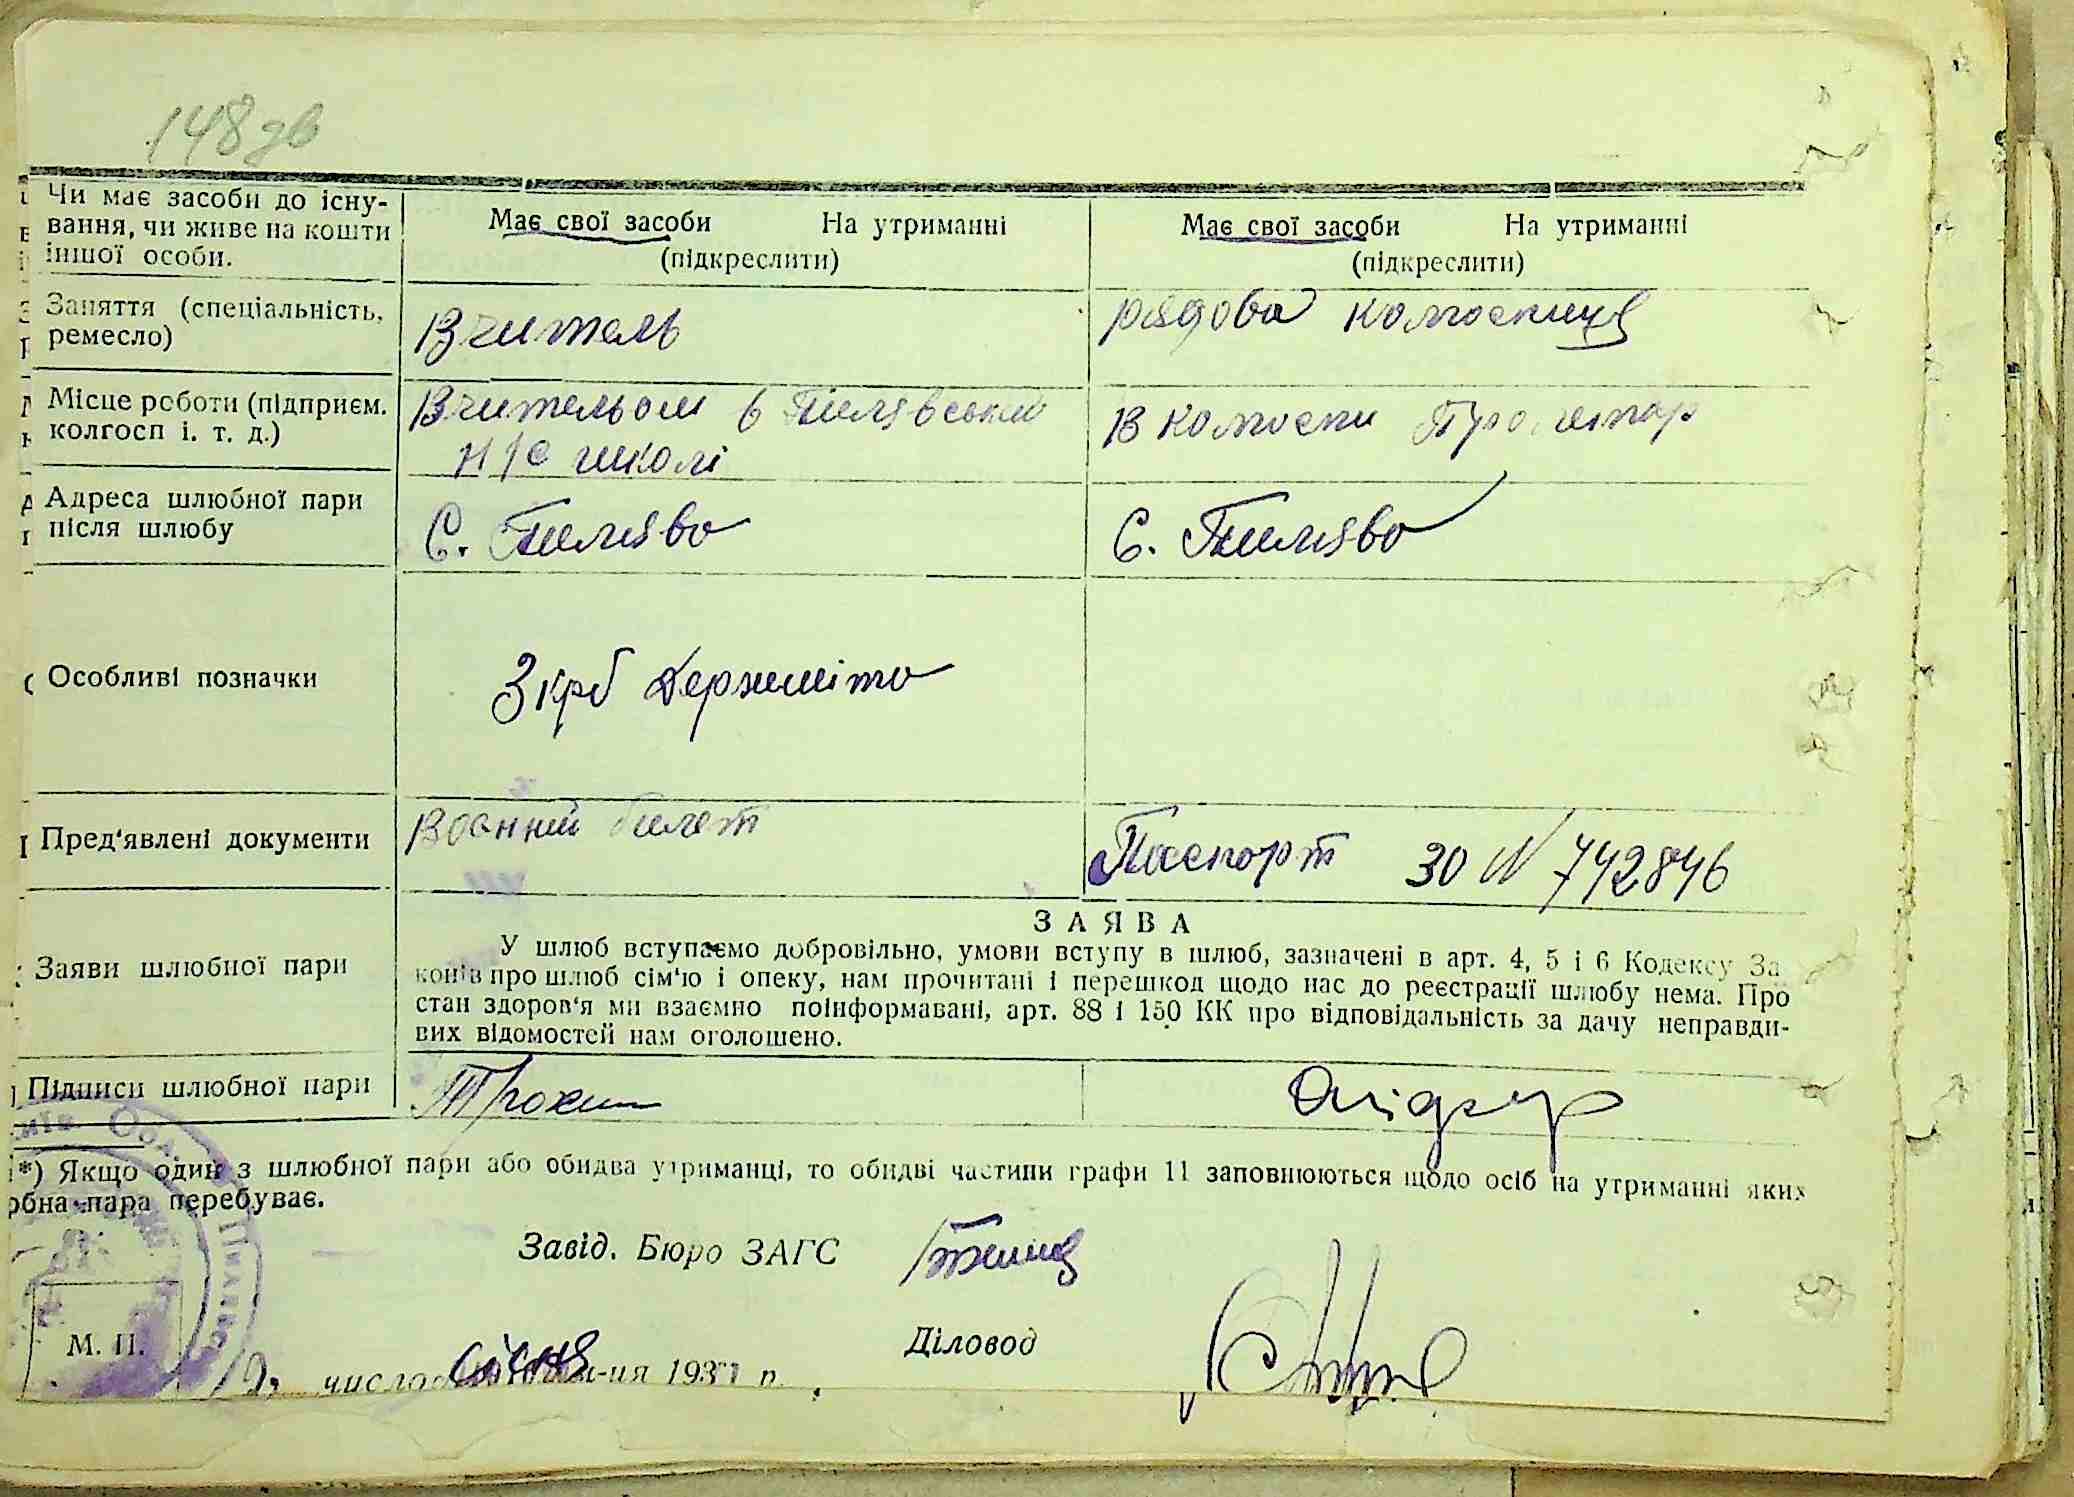 148 зв
Чи має засоби до існу-
вання, чи живе на кошти
іншої особи.
Має свої засоби На утриманні
(підкреслити)
Має свої засоби На утриманні
(підкреслити)
Заняття (спеціальність,
ремесло)
Вчитель
рядова колгоспниця
Місце роботи (підприєм.
колгосп і. т. д.)
Вчительом в Пилявській
Н/С школі
В колгоспи Пролетар
Адреса шлюбної пари
після шлюбу
С. Пилява
С. Пилява
Особливі позначки
3 крб Держмито
Пред'явлені документи
Воєнний билет
Паспорт 30 N 742846
Заяви шлюбної пари
ЗАЯВА
У шлюб вступаємо добровільно, умови вступу в шлюб, зазначені в арт. 4, 5 і 6 Кодексу За
конів про шлюб сім'ю і опеку, нам прочитані і перешкод щодо нас до реєстрації шлюбу нема. Про
стан здоров'я ми взаємно поінформавані, арт. 88 і 150 КК про відповідальність за дачу неправди-
вих відомостей нам оголошено.
Підписи шлюбної пари
*) Якщо один з шлюбної пари або обидва утриманці, то обидві частини графи 11 заповнюються щодо осіб на утриманні яких
рбна пара перебуває.
Завід. Бюро ЗАГС
Діловод
М. П.
число січня 193 р.